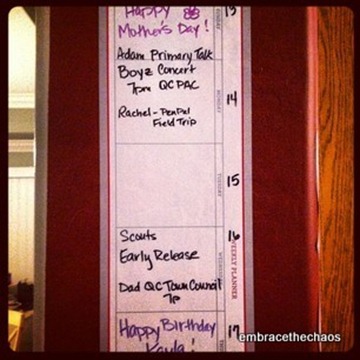 Happy
13
Mother's Day!
Adam Primary Talk
Boyz Concert
7pm QCPAC
MONDAY
14
Rachel - PenPal
Field Trip
TUESDAY
15
Scouts
16
Early Release
WEDNESDAY
WEEKLY PLANNER
Dad QC Town Council
7p
Happy Birthday
17
Kayla!
embracethechaos